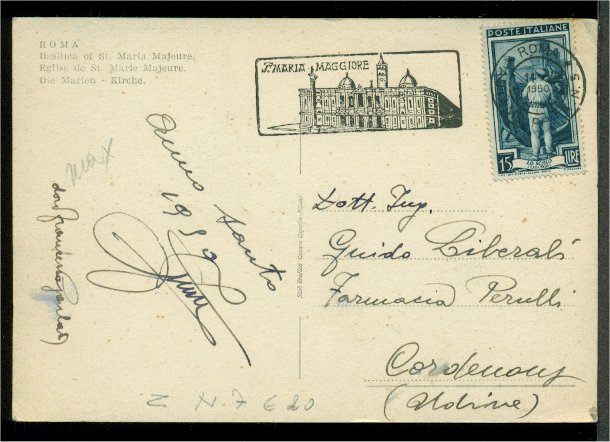 ROMA
Basilica of St. Maria Majeure.
Eglise de St. Marie Majeure.
Die Marien - Kirche.
S. MARIA MAGGIORE
ROMA
1950
POSTE ITALIANE
15 LIRE
Anno Santo
1950
Dott. Ing.
Guido Liberali
Farmacia Perulli
Cordenons
(Udine)
Z N. 7 € 20